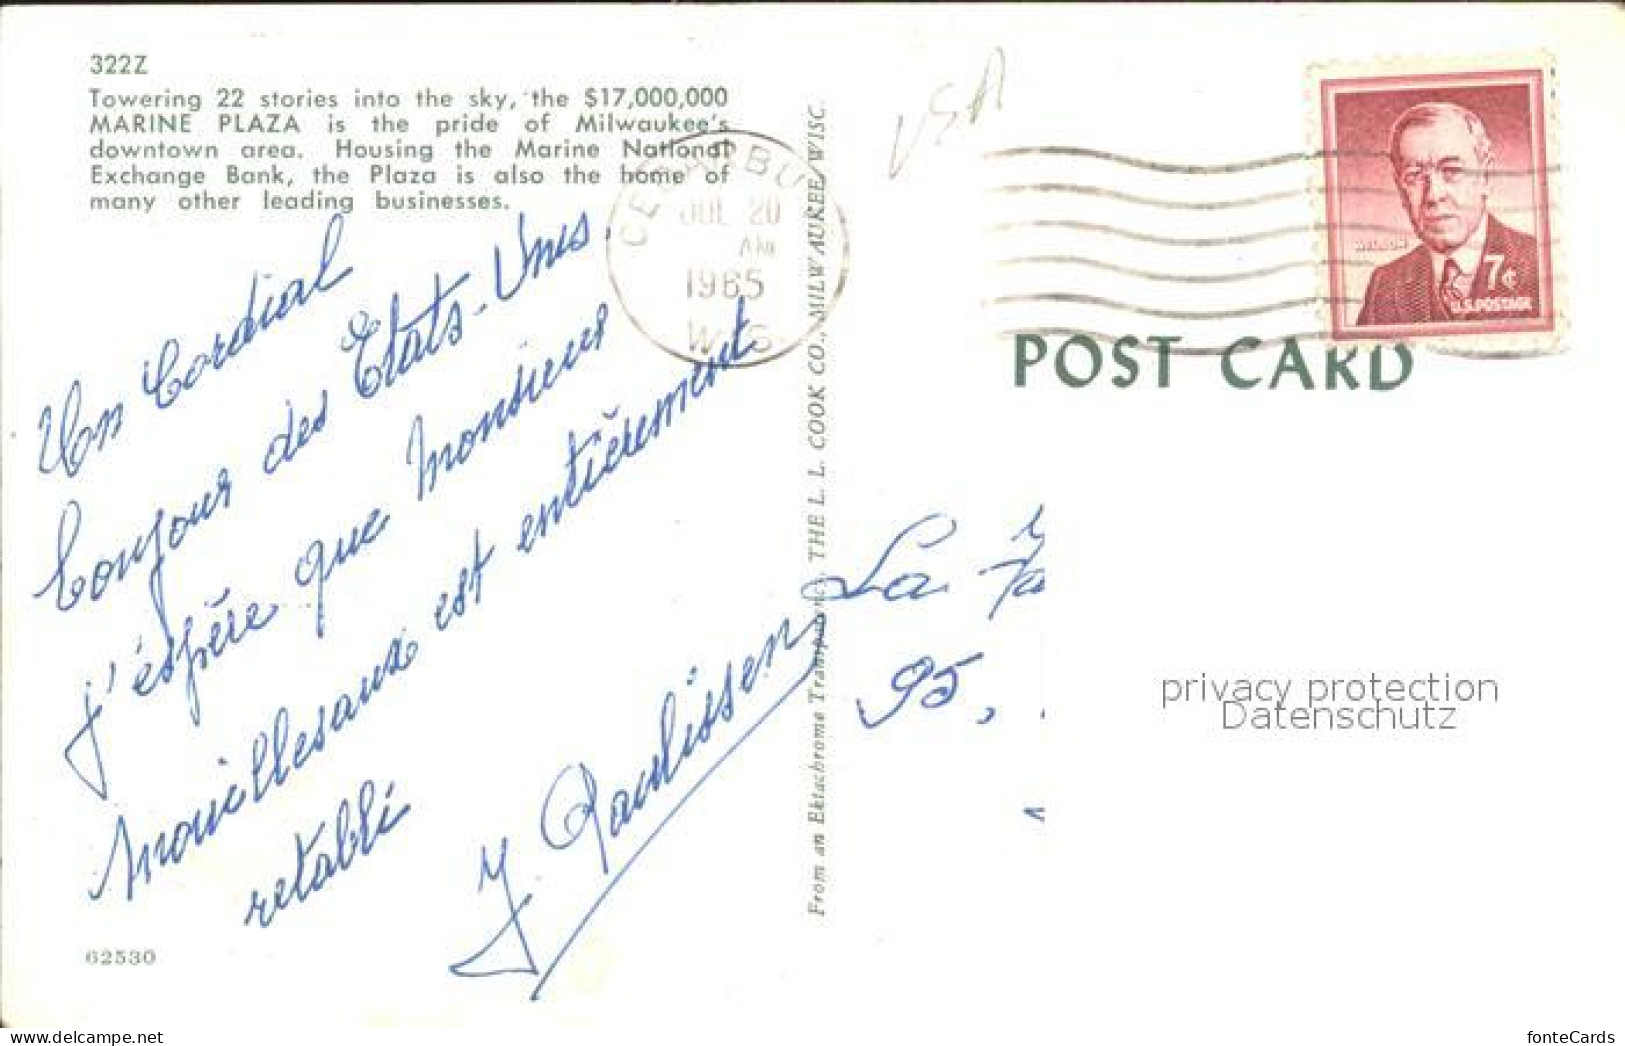 322Z
Towering 22 stories into the sky, the $17,000,000
MARINE PLAZA is the pride of Milwaukee's
downtown area. Housing the Marine National
Exchange Bank, the Plaza is also the home of
many other leading businesses.
Un Cordial
bonjour des Etats-Unis.
j'éspère que monsieur
Mouillesaux est entièrement
retabli
62530
JUL 20
AM
1965
WIS
From an Ektachrome Transparency, THE L. L. COOK CO., MILWAUKEE, WISC.
USA
7¢
U.S. POSTAGE
POST CARD
La
95,
privacy protection
Datenschutz
www.delcampe.net
fonteCards